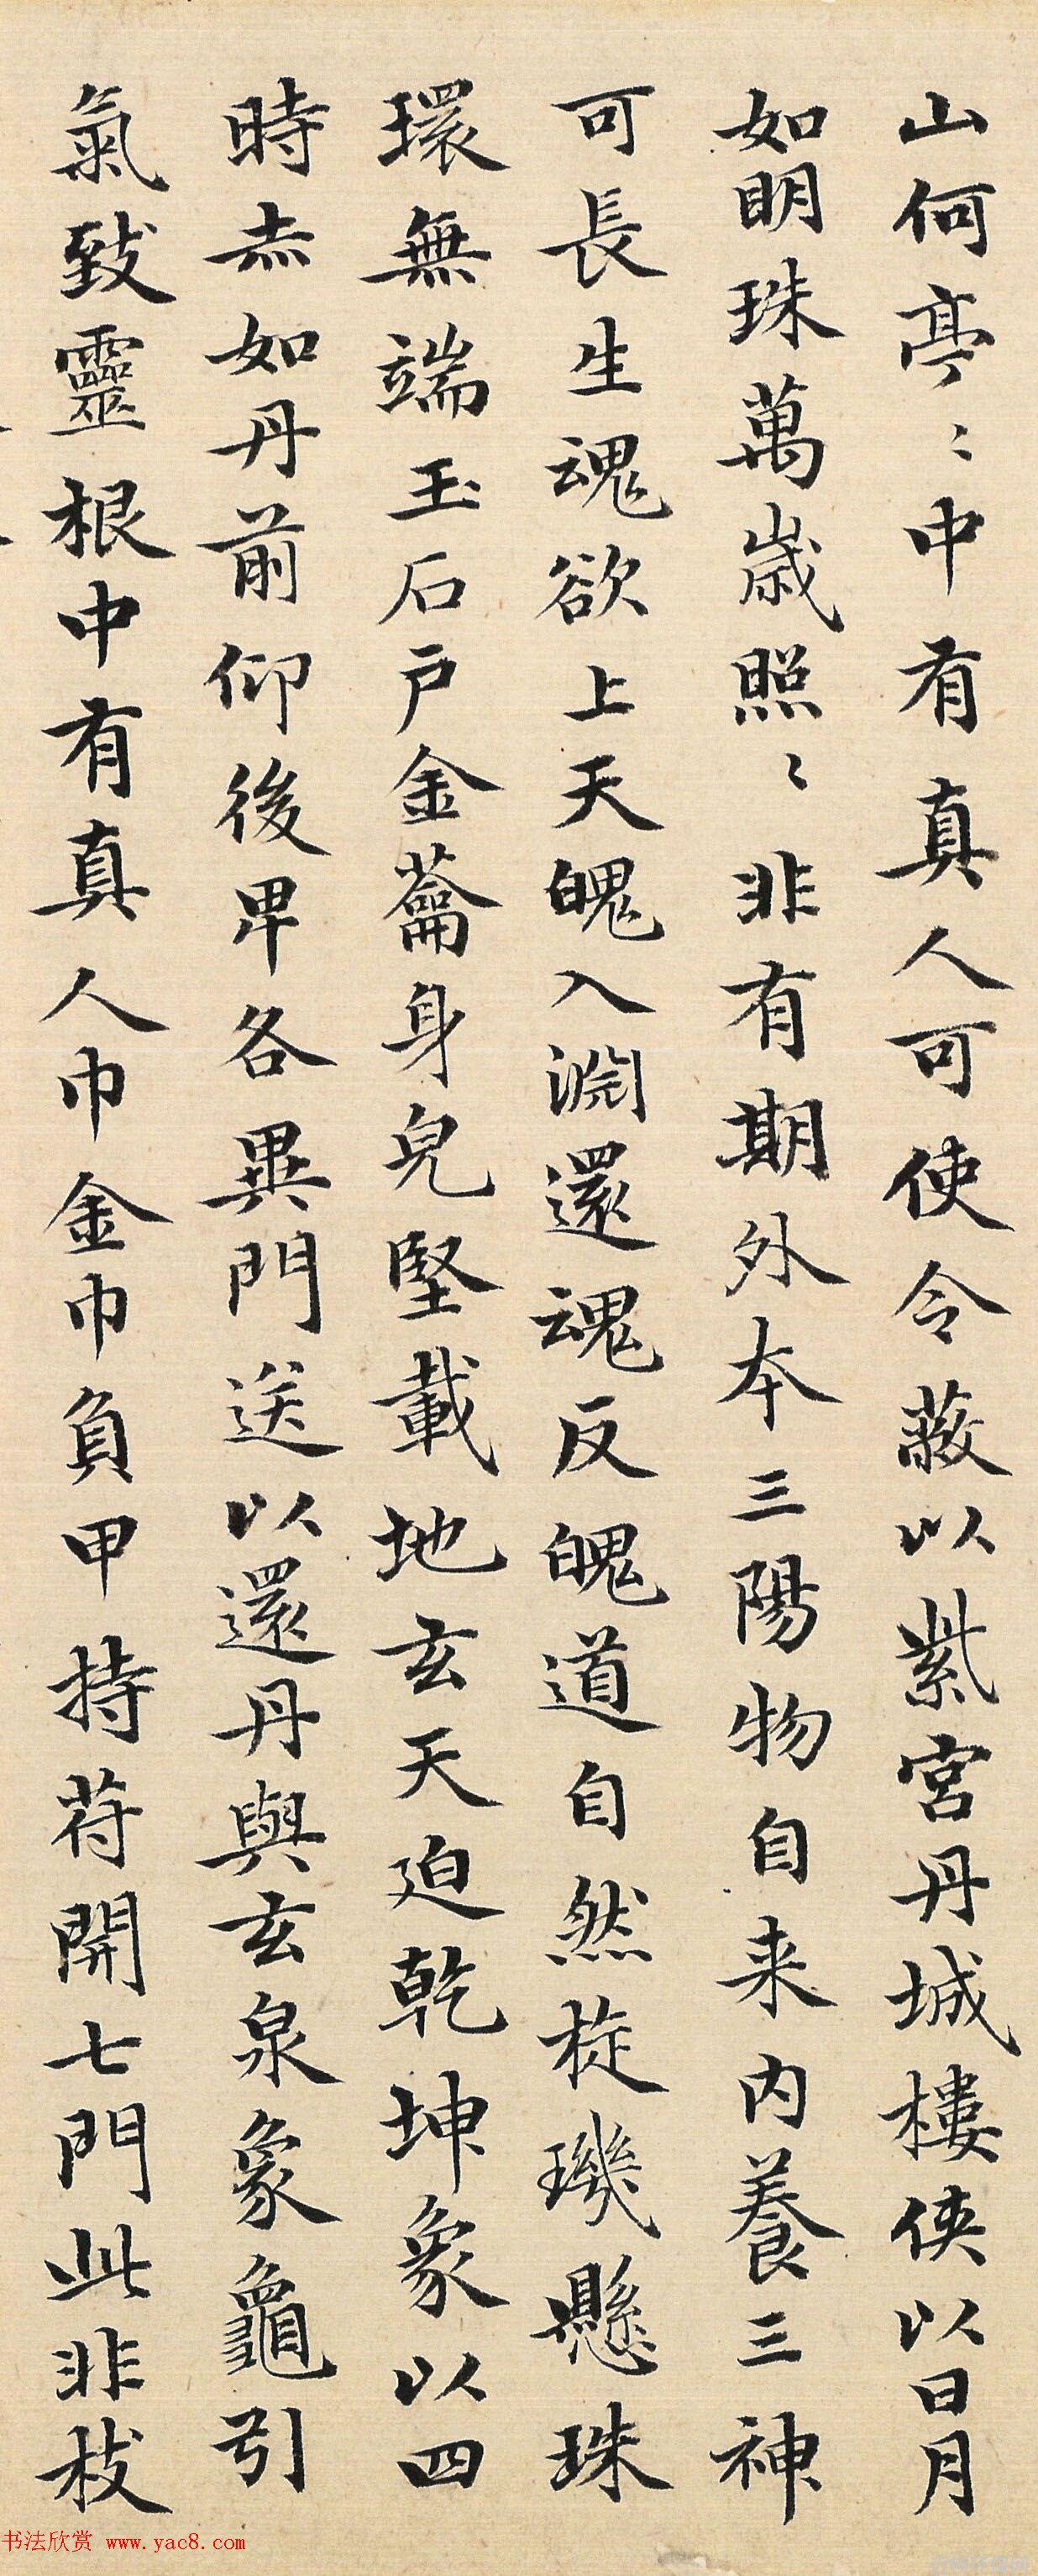 山何亭〻中有真人可使令蔽以紫宮丹城樓俠以日月
如明珠萬歲照〻非有期外本三陽物自来内養三神
可長生魂欲上天魄入淵還魂反魄道自然琁璣懸珠
環無端玉石戶金蘥身皃堅載地玄天迫乾坤象以四
時赤如丹前仰後卑各異門送以還丹與玄泉象龜引
氣致靈根中有真人巾金巾負甲持苻開七門此非枝
书法欣赏 www.yac8.com